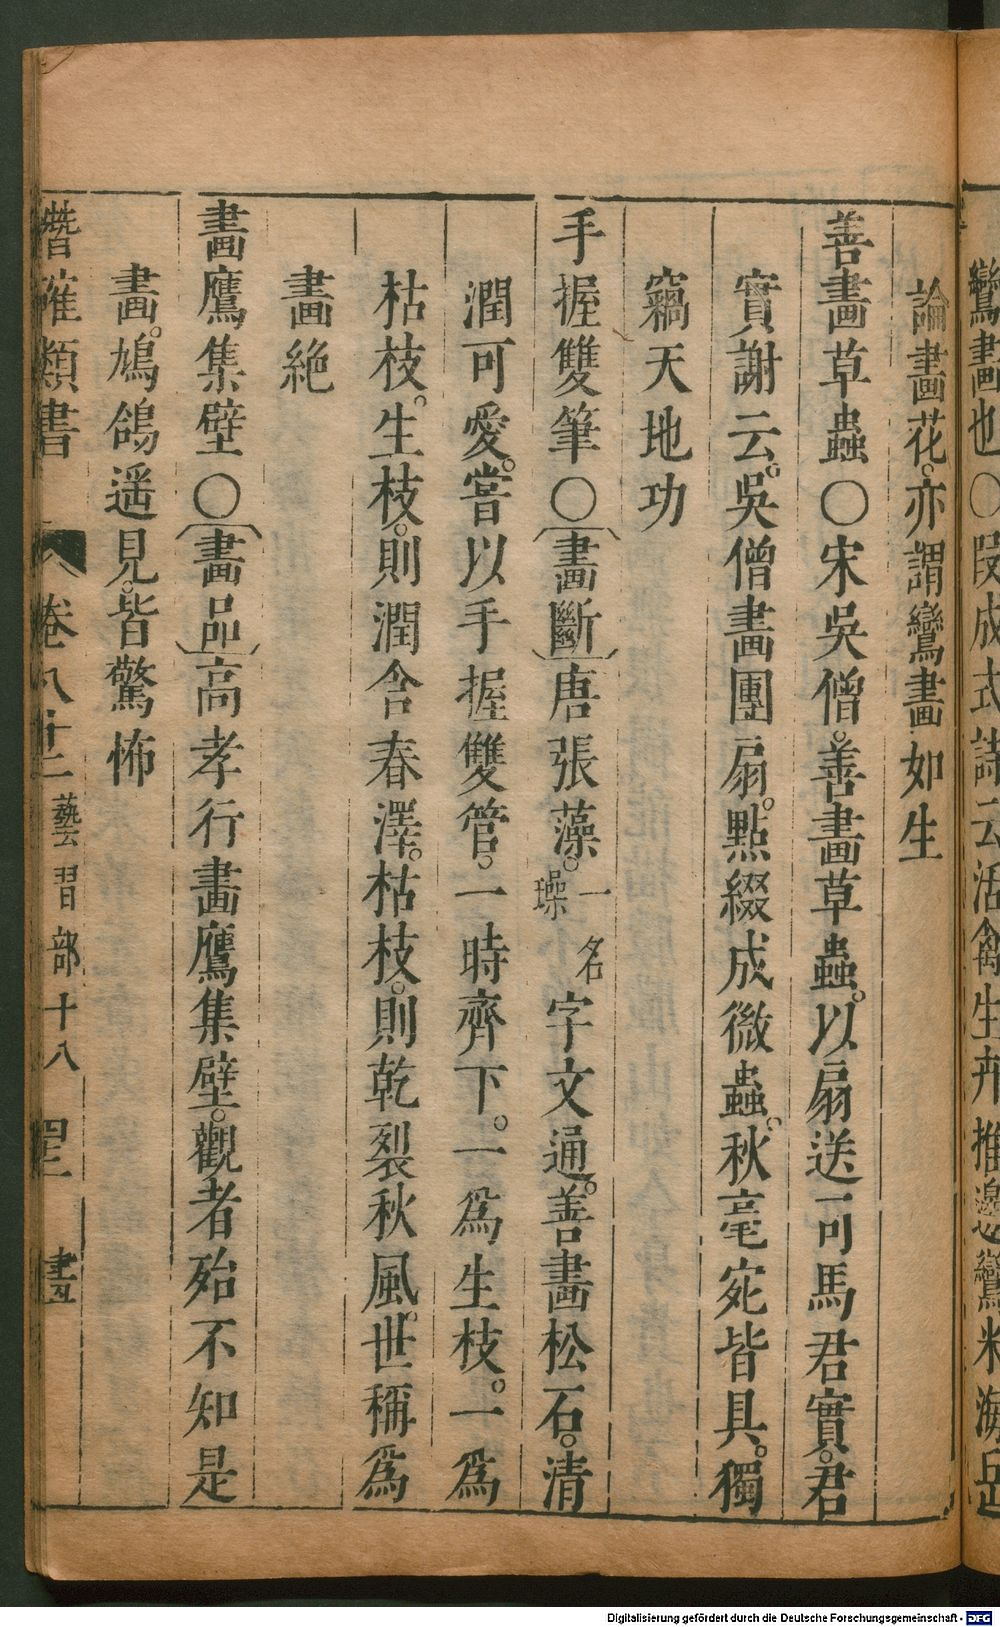 鸞畫也〇段成式詩云活禽生卉推邊鸞米海岳
論畫花。亦謂鸞畫如生
善畫草蟲〇宋吳僧。善畫草蟲。以扇送司馬君實。君
實謝云。吳僧畫團扇。點綴成微蟲。秋毫宛皆具。獨
竊天地功
手握雙筆〇〔畫斷〕唐張藻。一名璪字文通。善畫松石。清
潤可愛。嘗以手握雙管。一時齊下。一為生枝。一為
枯枝。生枝。則潤含春澤。枯枝。則乾裂秋風。世稱為
畫絕
畫鷹集壁〇〔畫品〕高孝行畫鷹集壁。觀者殆不知是
畫。鳩鴿遥見。皆驚怖
潛確類書 卷八十二 藝習部十八 四二 畫五
Digitalisierung gefördert durch die Deutsche Forschungsgemeinschaft - DFG